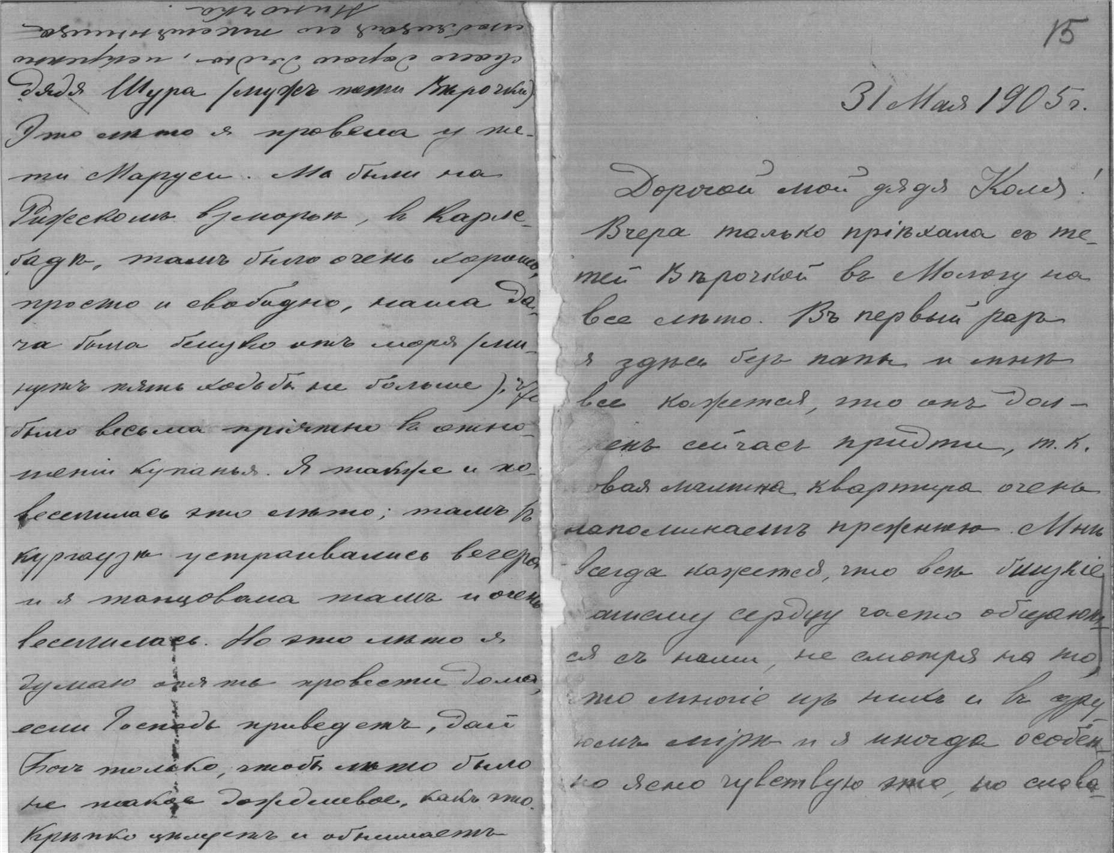 15
31 Мая 1905 г.
Дорогой мой дядя Коля!
Вчера только пріѣхала съ те-
тей Вѣрочкой въ Мологу на
все лѣто. Въ первый разъ
я здѣсь безъ папы и мнѣ
все кажется, что онъ дол-
женъ сейчасъ придти, т.к.
новая мамина квартира очень
напоминаетъ прежнюю. Мнѣ
всегда кажется, что всѣ близкіе
нашему сердцу часто общают-
ся съ нами, не смотря на то,
что многіе изъ нихъ и въ дру-
гомъ мірѣ и я иногда особен-
но ясно чувствую это, но слова-
дядя Шура (мужъ тети Вѣрочки)
Это лѣто я провела у те-
ти Маруси. Мы были на
Рижскомъ взморьѣ, въ Карлс-
бадѣ, тамъ было очень хорошо,
просто и свободно, наша да-
ча была близко отъ моря (ми-
нутъ пять ходьбы не больше), что
было весьма пріятно въ отно-
шеніи купанья. Я также и по-
веселилась это лѣто; тамъ въ
курзаузѣ устраивались вечера
и я танцовала тамъ и очень
веселилась. Но это лѣто я
думаю опять провести дома,
если Господь приведетъ, дай
Богъ только, чтобы лѣто было
не такое дождливое, какъ это.
Крѣпко цѣлуетъ и обнимаетъ
своего дорого дядю, искренно
любящая его племянница
Ниночка.